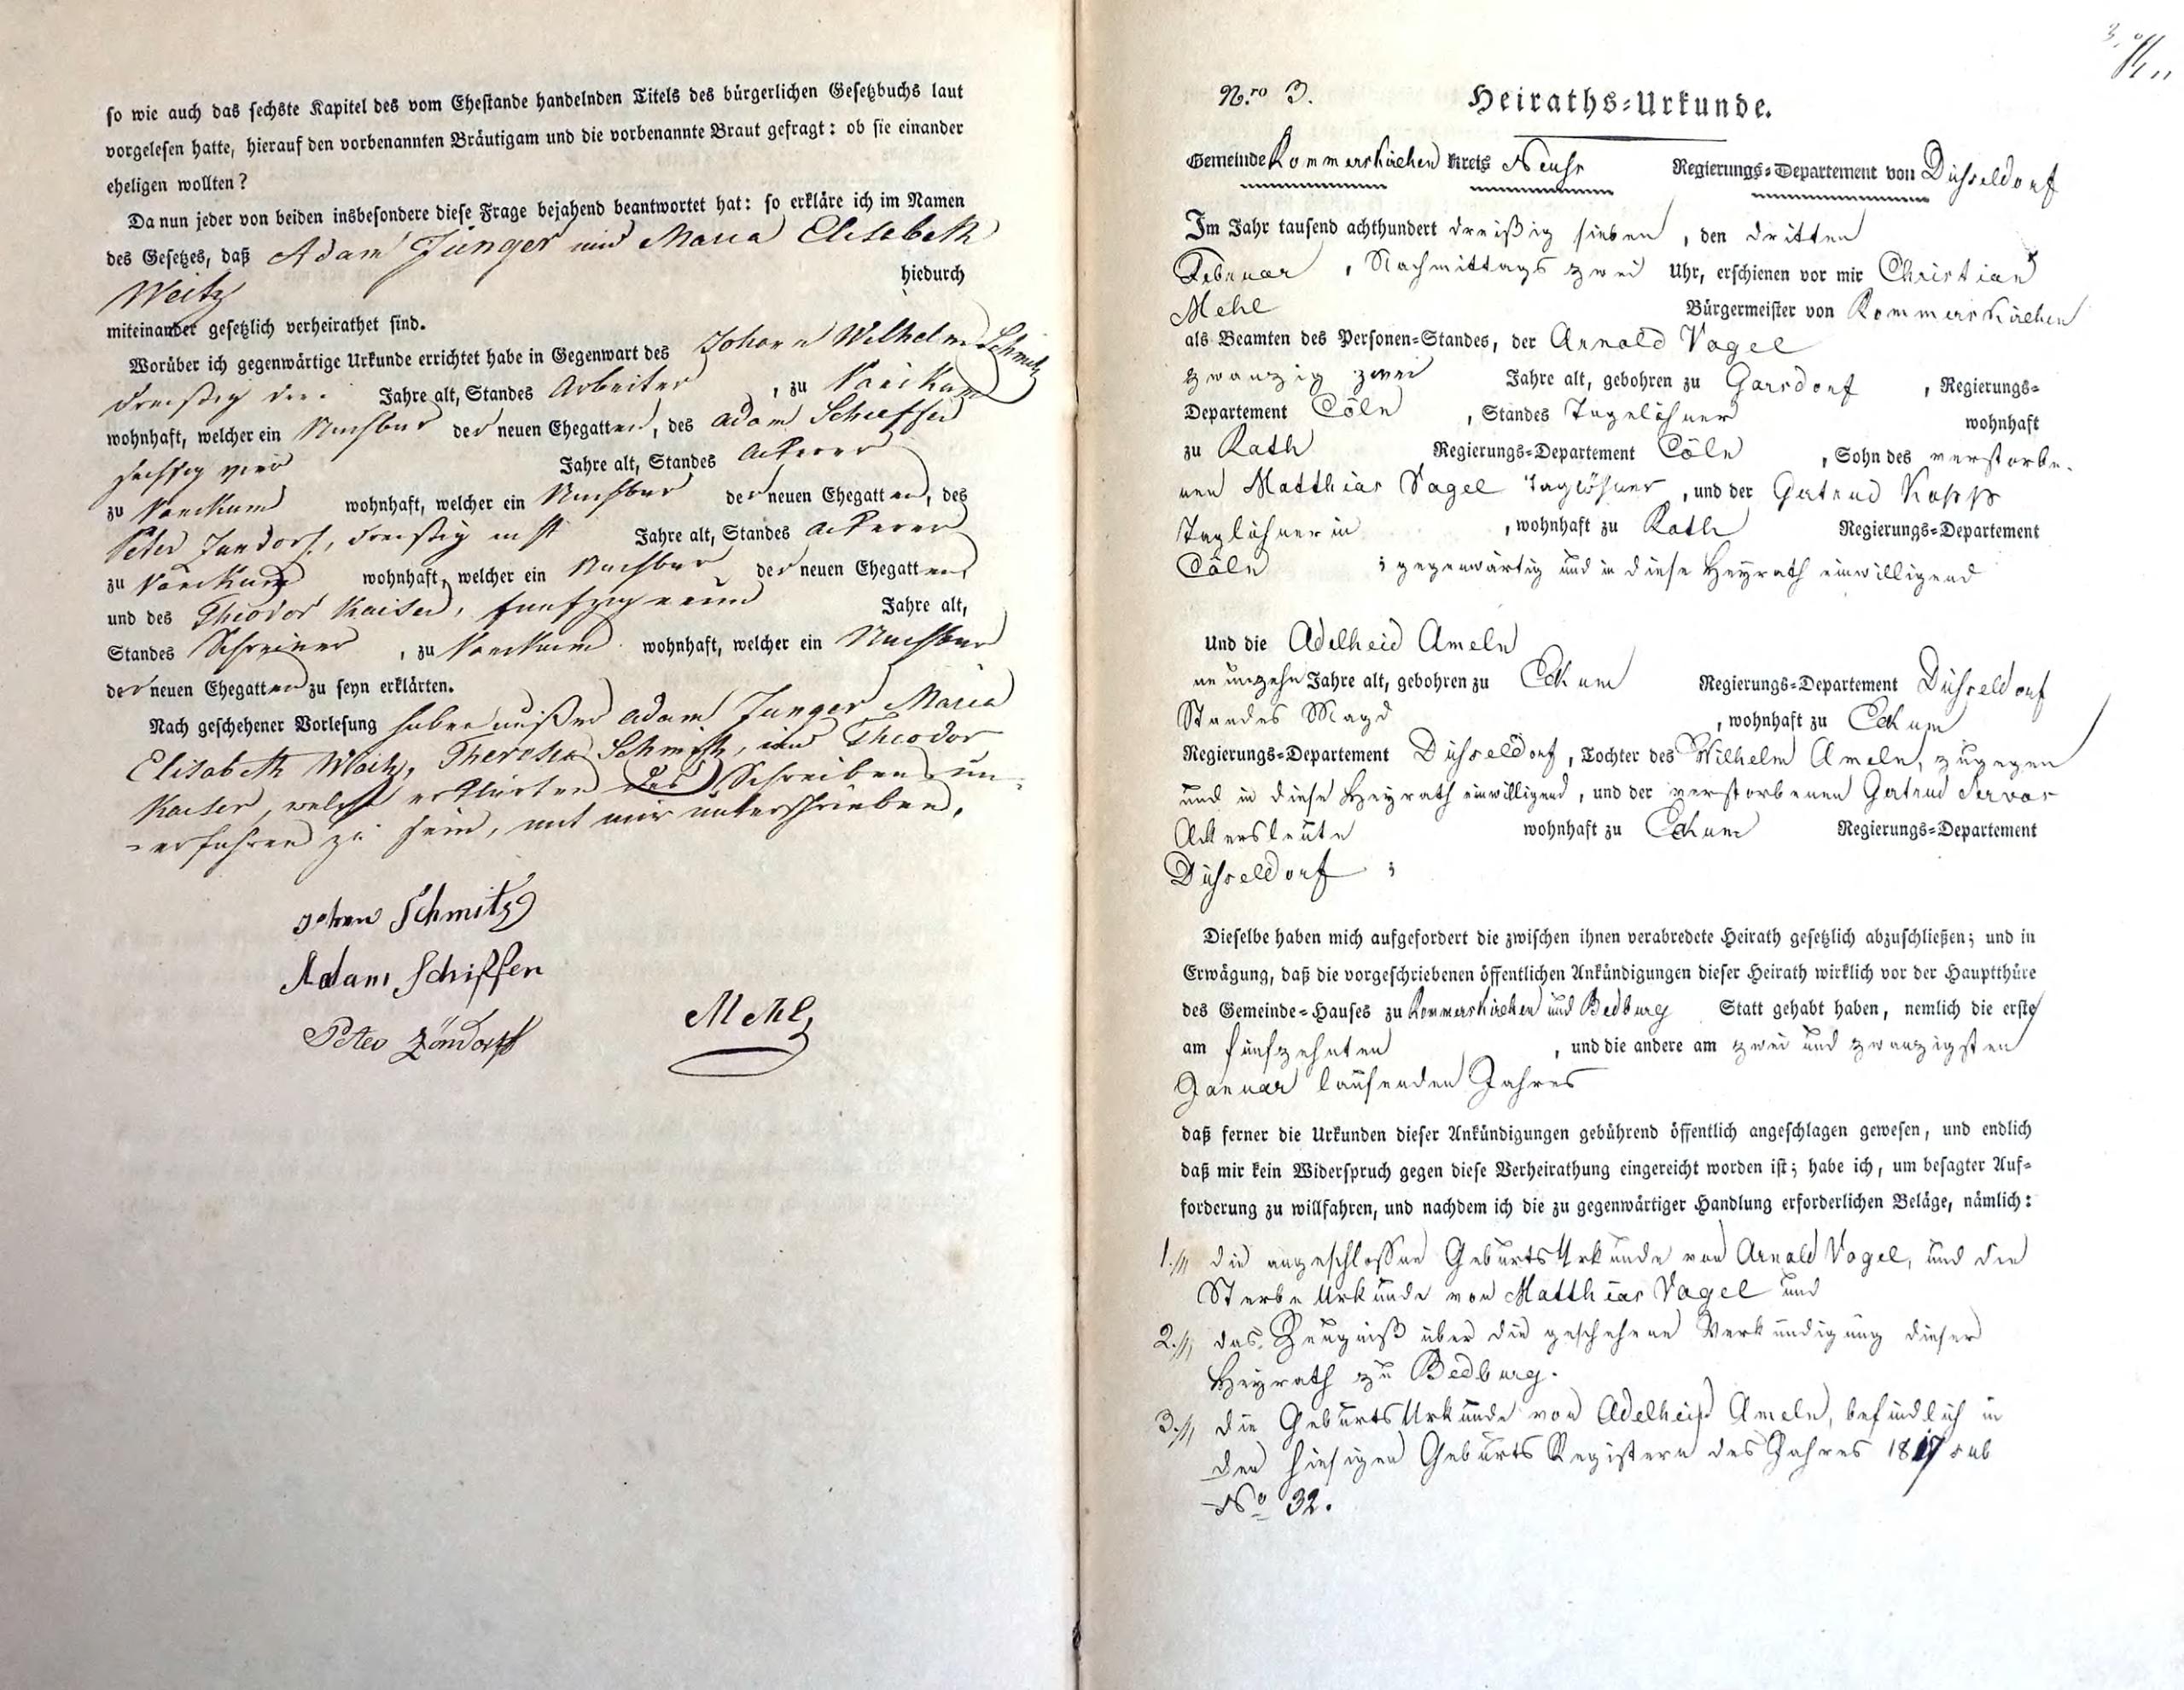 so wie auch das sechste Kapitel des vom Ehestande handelnden Titels des bürgerlichen Gesetzbuchs laut
vorgelesen hatte, hierauf den vorbenannten Bräutigam und die vorbenannte Braut gefragt: ob sie einander
eheligen wollten?
Da nun jeder von beiden insbesondere diese Frage bejahend beantwortet hat: so erkläre ich im Namen
des Gesetzes, daß Adam Jünger und Maria Elisabeth
Weitz hiedurch
miteinander gesetzlich verheirathet sind.
Worüber ich gegenwärtige Urkunde errichtet habe in Gegenwart des Johann Wilhelm Schmitz
dreißig drei Jahre alt, Standes Arbeiter, zu Vanikum
wohnhaft, welcher ein Nachbar der neuen Ehegatten, des Adam Scheffen
sechszig vier Jahre alt, Standes Ackerer
zu Vanikum wohnhaft, welcher ein Nachbar der neuen Ehegatten, des
Peter Zundorf, dreißig acht Jahre alt, Standes Ackerer
zu Vanikum wohnhaft, welcher ein Nachbar der neuen Ehegatten,
und des Theodor Kaiser, fünfzig neun Jahre alt,
Standes Schreiner, zu Vanikum wohnhaft, welcher ein Nachbar
der neuen Ehegatten zu seyn erklärten.
Nach geschehener Vorlesung haben außer Adam Junger Maria
Elisabeth Weitz, Theresia Schmitz, und Theodor
Kaiser, welche erklärten des Schreibens un-
-erfahren zu sein, mit mir unterschrieben.
Johan Schmitz
Adam Schiffen
Peter Zöndorff
Mehl
3.
Nro 3. Heiraths-Urkunde.
Gemeinde Rommerskirchen Kreis Neuß Regierungs-Departement von Düsseldorf
Im Jahr tausend achthundert dreißig sieben, den dritten
Februar, Nachmittags zwei Uhr, erschienen vor mir Christian
Mehl Bürgermeister von Rommerskirchen
als Beamten des Personen-Standes, der Arnold Vogel
zwanzig zwei Jahre alt, gebohren zu Garsdorf, Regierungs-
Departement Cöln, Standes Tagelöhner wohnhaft
zu Rath Regierungs-Departement Cöln, Sohn des verstorbe-
nen Matthias Vogel Taglöhner, und der Gertrud Kopp
Taglöhnerin, wohnhaft zu Rath Regierungs-Departement
Cöln; gegenwärtig und in diese Heyrath einwilligend
Und die Adelheid Ameln
neunzehn Jahre alt, gebohren zu Eckum Regierungs-Departement Düsseldorf
Standes Magd, wohnhaft zu Eckum
Regierungs-Departement Düsseldorf, Tochter des Wilhelm Ameln, zugegen
und in diese Heyrath einwilligend, und der verstorbenen Gertrud Servos
Ackersleute wohnhaft zu Eckum Regierungs-Departement
Düsseldorf;
Dieselbe haben mich aufgefordert die zwischen ihnen verabredete Heirath gesetzlich abzuschließen; und in
Erwägung, daß die vorgeschriebenen öffentlichen Ankündigungen dieser Heirath wirklich vor der Hauptthüre
des Gemeinde-Hauses zu Rommerskirchen und Bedburg Statt gehabt haben, nemlich die erste
am fünfzehnten, und die andere am zwei und zwanzigsten
Januar laufenden Jahres
daß ferner die Urkunden dieser Ankündigungen gebührend öffentlich angeschlagen gewesen, und endlich
daß mir kein Widerspruch gegen diese Verheirathung eingereicht worden ist; habe ich, um besagter Auf-
forderung zu willfahren, und nachdem ich die zu gegenwärtiger Handlung erforderlichen Beläge, nämlich:
1. die angeschlossene Geburts Urkunde von Arnold Vogel, und die
Sterbe Urkunde von Matthias Vogel und
2. das Zeugniß über die geschehene Verkündigung dieser
Heyrath zu Bedburg.
3. die Geburts Urkunde von Adelheid Ameln, befindlich in
den hiesigen Geburts Registern des Jahres 1817 sub
No 32.